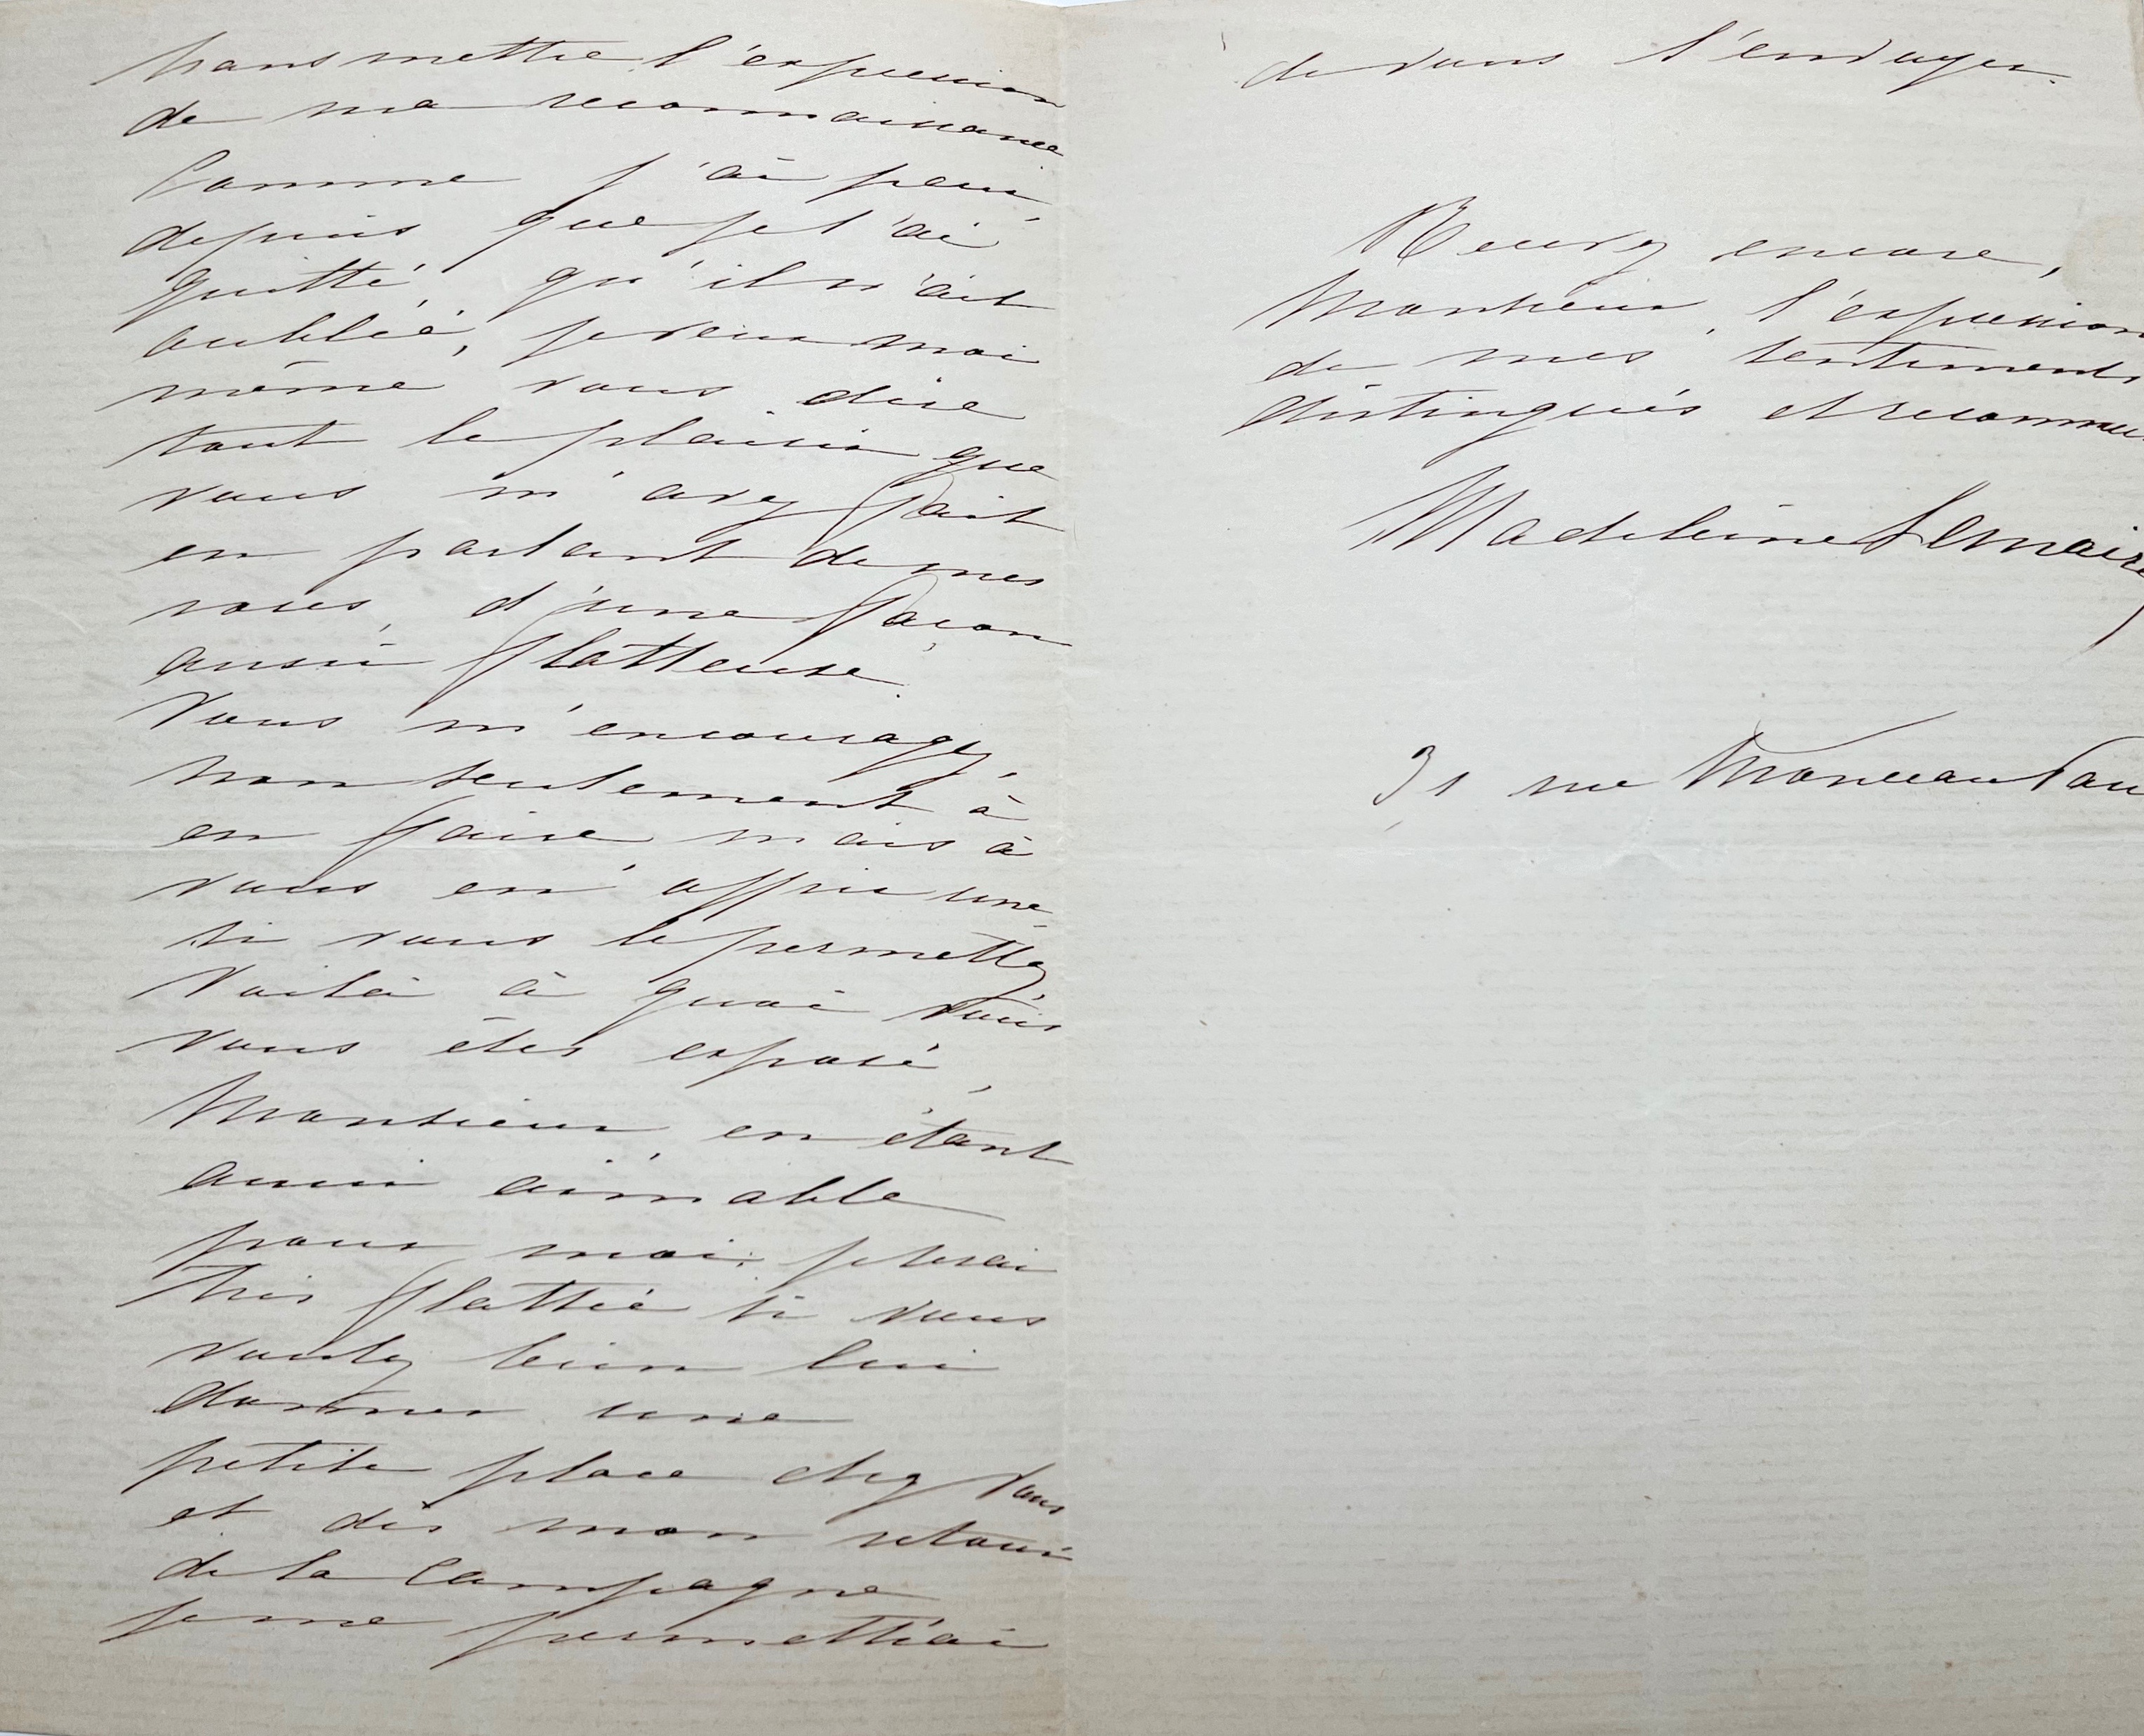 transmettre l'expression
de ma reconnaissance
Comme j'ai peur,
depuis que je l'ai
quitté, qu'il n'ait
oublié, je veux moi
même vous dire
tout le plaisir que
vous m'avez fait
en parlant de mes
roses, d'une façon
aussi flatteuse.
Vous m'encouragez,
non seulement à
en faire mais à
vous en offrir une
si vous le permettez,
Voilà à quoi vous
vous êtes exposé,
Monsieur, en étant
aussi aimable
pour moi; je serai
très flattée si vous
voulez bien lui
donner une
petite place chez vous
et dès mon retour
de la Campagne
je me permettrai
de vous l'envoyer.
Recevez encore,
Monsieur, l'expression
de mes sentiments
distingués et reconnai
Madeleine Lemaire
31 rue Monceau